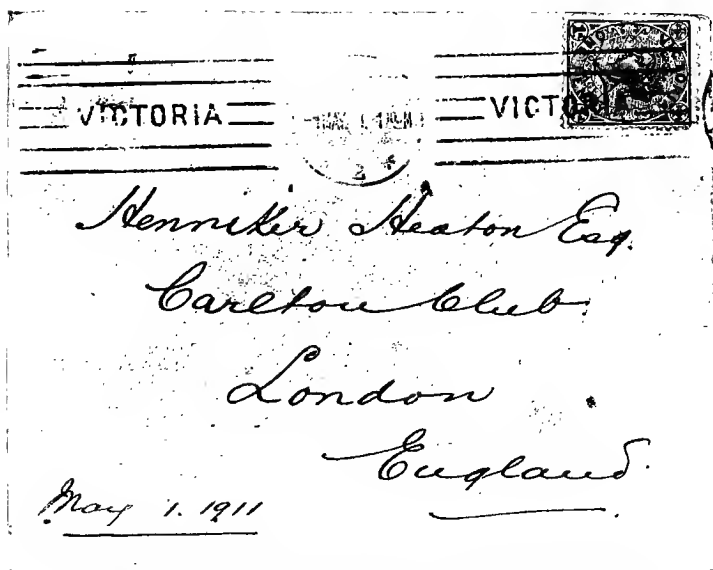 VICTORIA VICTORIA
2
Henniker Heaton Esq.
Carlton Club
London
England.
May 1. 1911